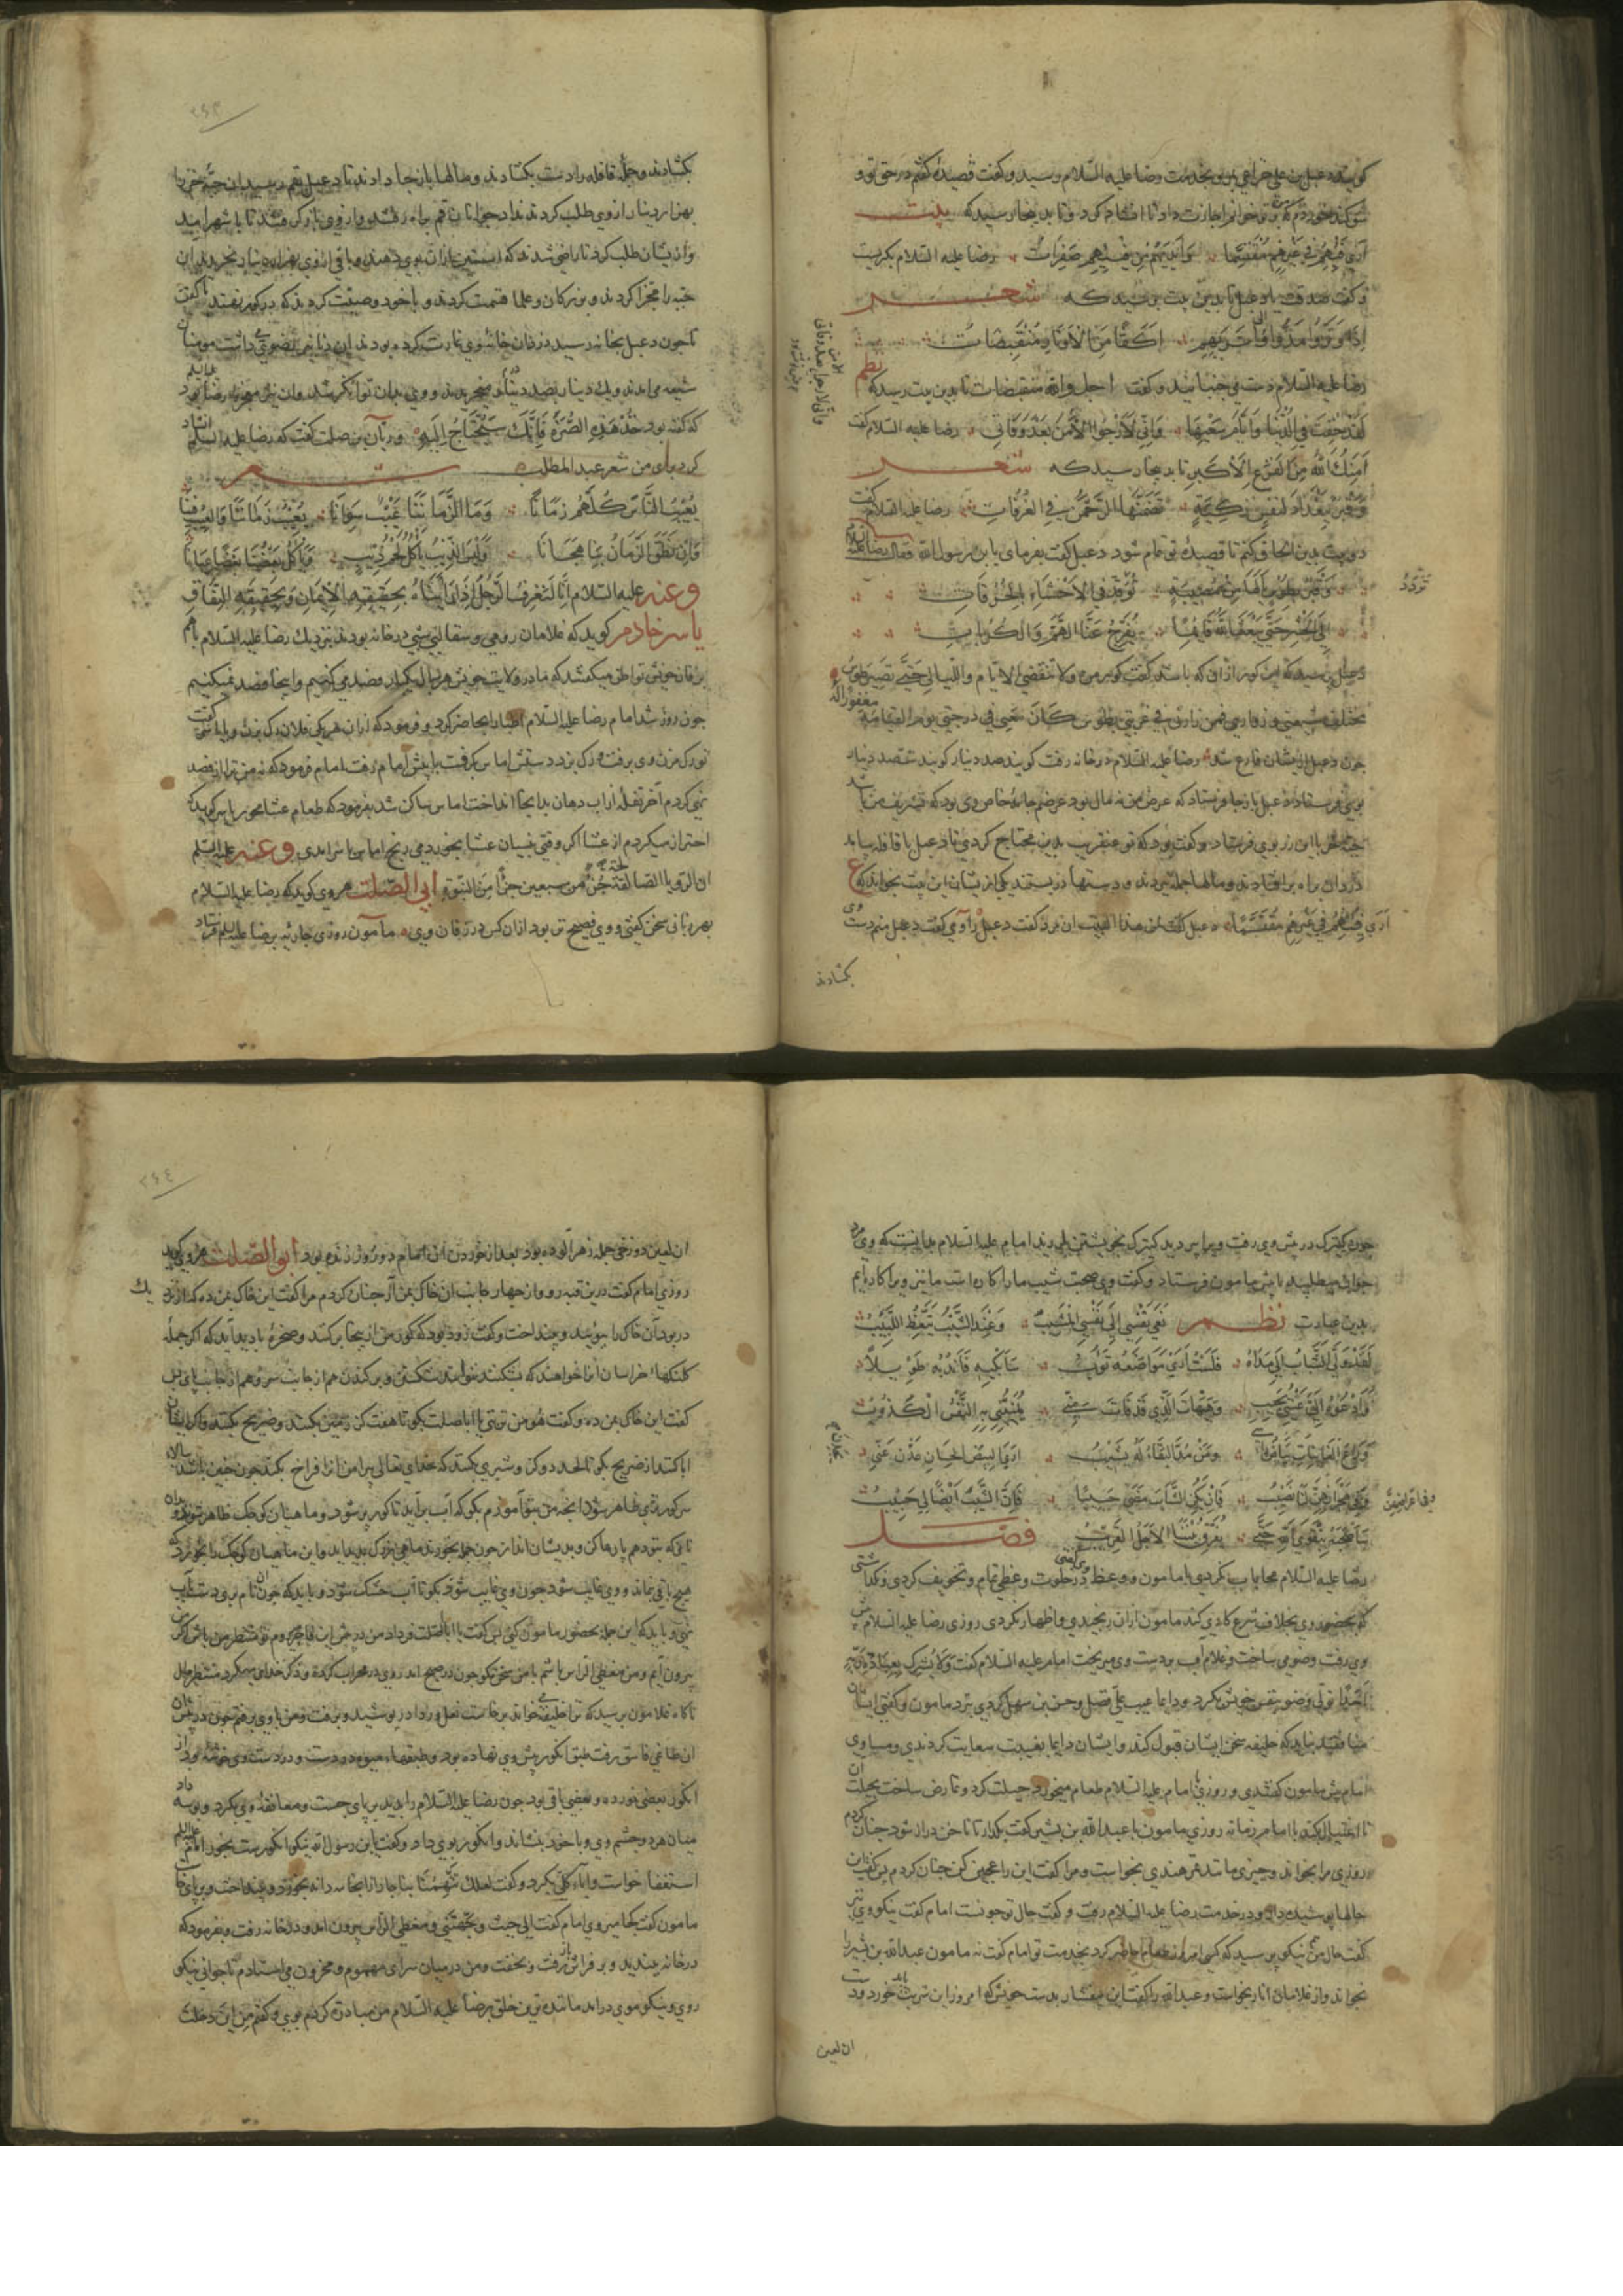 کویند دعبل بن علی خزاعی بمرو بخدمت رضا علیه السلام رسید و کفت قصیدهٔ کفتم در حق تو و
سوکند خوردم که بر تو خوانم اجازت داد تا انشاد کرد و تا بدینجا رسید که بیت
اری فیئهم فی غیرهم متقسما وایدیهم من فیئهم صفرات رضا علیه السلام بکریست
و کفت صدقت یا دعبل تا بدین بیت برسید که شعر
اذا وتروا مدوا الی واتریهم اکفا من الاوتار منقبضات
رضا علیه السلام دست می جنبانید و کفت اجل والله منقبضات تا بدین بیت رسید که نظم
لقد خفت فی الدنیا وایام سعیها وانی لارجوا الامن بعد وفاتی رضا علیه السلام کفت
آمنک الله من الفزع الاکبر تا بدینجا رسید که شعر
وقبر ببغداد لنفس زکیة تضمنها الرحمن فی الغرفات رضا علیه السلام کفت
دو بیت بدین الحاق کنم تا قصیدهٔ تو تمام شود دعبل کفت بفرمای یا بن رسول الله فقال رضا علیه السلام
وقبر بطوس یالها من مصیبة توقد فی الاحشاء بالحرقات
تردد
الی الحشر حتی یبعث الله قائما یفرج عنا الهم والکربات
دعبل پرسید که این کور از آن که باشد کفت کور من ولا تنقضی الایام واللیالی حتی تصیر طوس
مختلف شیعتی وزواری فمن زارنی فی غربتی بطوس کان معی فی درجتی یوم القیامة
مغفورا له
چون دعبل از انشاد فارغ شد رضا علیه السلام در خانه رفت کویند صد دینار کویند ششصد دینار
بوی فرستاد دعبل باز جا فرستاد که غرض من نه مال بود غرضم جامهٔ خاص وی بود که تشریف من باشد
جبه خز با این زر بوی فرستاد و کفته بود که تو عنقریب بدین محتاج کردی تا دعبل با قافله بیامد
دزدان براه بر افتادند و مالها جمله ببردند و دستها در بستند یکی از ایشان این بیت بخواند که ع
اری فیئهم فی غیرهم متقسما دعبل کفت لمن هذا البیت ان مرد کفت دعبل را وی کفت دعبل منم دست وی
بکشادند
بکشادند و جمله قافله را دست بکشادند و مالها باز جا دادند تا دعبل بقم رسید ان جبه خز را
بهزار دینار از وی طلب کردند نداد جوانان قم براه رفتند و از وی باز کرفتند تا با شهر آمد
و از یشان طلب کرد تا راضی شدند که آستین از آن بوی دهند و باقی از وی بهزار دینار بخریدند ان
جبه را مجزا کردند و بزرکان و علما قسمت کردند و با خود وصیت کردند که در کور نهند تا کفت
تا جون دعبل بخانه رسید دزدان خانهٔ وی غارت کرده بودند این دنانیر رضوی داشت مومنان
شیعه می امدند و یک دینار بصد دینار می خریدند و وی بدان توانکر شد وان نیز معجزهٔ رضا بود علیه السلام
که کفته بود خذ هذه الصرة فانک ستحتاج الیها و ریان بن صلت کفت که رضا علیه السلام انشاد
کرد برای من شعر عبد المطلب شعر
یعیب الناس کلهم زمانا وما لزماننا عیب سوانا نعیب زماننا والعیب فینا
وان نطق الزمان بنا هجانا ولیس الذیب یاکل لحم ذیب ویاکل بعضنا بعضا عیانا
وعنه علیه السلام انا لنعرف الرجل اذا رأیناه بحقیقه الایمان وبحقیقة النفاق
یاسر خادم کوید که غلامان رومی و سقالبی بسی در خانه بودند نزدیک رضا علیه السلام باهم
چون روز شد امام رضا علیه السلام اطبا را بخا حاضر کرد و فرمود که از ان هر یکی فلان رک بزن و یاسر را کفت
تو رک مزن وی برفت و رک بزد دستش اماس کرفت با پیش امام رفت امام فرمود که نه من ترا از فصد
نهی کردم آخر تفله از آب دهان بدانجا انداخت اماس ساکن شد بفرمود که طعام عشا مخور یاسر کوید که
احتراز میکردم از عشا اکر وقتی بنسیان عشا بخوردمی رنج اماس باسر آمدی وعنه علیه السلام
ان الرؤیا الصالحة جزء من سبعین جزءا من النبوة ابی الصلت هروی کوید که رضا علیه السلام
بهر زبانی سخن کفتی و وی فصیح تر بود ازان کس در زفان وی مامون روزی جاریه برضا علیه السلم فرستاد
چون کنیزک در پیش وی رفت ویرا پیر دید کنیزک بخویشتن بلرزید امام علیه السلام بدانست که وی مرد
جوان میطلبد با پیش مامون فرستاد و کفت وی صحبت شیب ما را کاره است ما نیز ویرا کاره ایم
بدین عبارت نظم نعی نفسی الی نفسی المشیب وعند الشیب یتعظ اللبیب
لقد ولی الشباب الی مداه فلست اری مواضعه تؤوب سابکیه واندبه طویلا
وادعوه الی عسی یجیب وهیهات الذی قد فات منه یمنینی به النفس الکذوب
وراع الغانیات بیاض راسی ومن مد البقاء له یشیب اری البیض الحسان یحدن عنی
وفی هجرانهن لنا نصیب فان یکن الشباب مضی حبیبا فان الشیب ایضا لی حبیب
ساصحبه بتقوی الله حتی یفرق بیننا الاجل القریب فصل
رضا علیه السلام محابا نکردی با مامون و وعظ وی کفتی در خلوت وعظی تمام و تخویف کردی و نکذاشتی
که بحضور وی بخلاف شرع کاری کند مامون ازان رنجیدی و اظهار نکردی روزی رضا علیه السلام پیش
وی رفت وضو می ساخت و غلام آب بر دست وی میریخت امام علیه السلام کفت ولا یشرک بعبادة ربه
احدا تولی وضو بنفس خویش بکرد و دایما عیب علی فضل و حسن بن سهل کردی نزد مامون و کفتی ایشان
امام پیش مامون کفتندی و روزی امام علیه السلام طعام میخورد حیلت کرد و تمارض ساخت بحیلت ان
تا اغتیال کند با امام زمانه روزی مامون با عبد الله بن بشیر کفت بکذار تا ناخن دراز شود جنان کردم
روزی مرا بخواند و جیزی مانند تمر هندی بخواست و مرا کفت این را عجین کن جنان کردم پس کفت این
حالها پوشیده دار و در خدمت رضا علیه السلام رفت و کفت حال تو جونست امام کفت نیکو وی نیز
کفت حال من نیکو پرسید که کسی امروز طعام حاضر کرد بخدمت تو امام کفت نه مامون عبد الله بن بشیر را
بخواند و از غلامان انار بخواست و عبد الله را کفت این بیفشار بدست خویش که امروز این شربت باید خورد و دست
ان لعین
ان لعین دوزخی جمله زهرآلوده بود بعد از خوردن آن امام دو روز زنده بود ابو الصلت هروی کوید
روزی امام کفت درین قبه رو و از جهار جانب ان خاک بمن آر جنان کردم مرا کفت این خاک بمن ده که از نزد
یک
در بود آن خاک را ببویید و بینداخت و کفت زود بود که کور من از اینجا برکنند و صخرهٔ بادید آید که اکر جملهٔ
کلنکها خراسان آنرا خواهند که بشکنند نتوانند شکستن و برکندن هم از جانب سر و هم از جانب پای پس
کفت این خاک بمن ده و کفت هو من تربتی یا اباصلت بکو تا هفت کز زمین بکنند و ضریح بکنند و اکر ایشان
ابا کنند از ضریح بکو تا لحد دو کز و شبری بکنند که خدای تعالی پیرامن انرا فراخ بکند جون حفر باشد بالاء
سر کور تری ظاهر شود آنچه من بتو آموزم بکو که آب برآید تا کور پر شود و ماهیان کوچک ظاهر شوند و نان
هیچ باقی نماند و وی غایب شود جون وی غایب شود بکو تا آب خشک شود و باید که جون آن نام بری دست بر آب
نهی و باید که این جمله بحضور مامون کنی پس کفت یا اباصلت فردا من در پیش این فاجر روم تو منتظر من باش اکر من
بیرون آیم و من مغطی الراس باشم با من سخن مکو جون در صبح امد روی در محراب کرده و ذکر خدای میکرد منتظر حال
ناکاه غلام مامون برسید که ترا خلیفه می خواند برخاست نعل و ردا در پوشید و برفت و من با وی برفتم جون در پیش
ان طاغی فاسق رفت طبق انکور پیش وی نهاده بود و طبقهاء میوه دو دست و در دست وی خوشهٔ بود از
انکور بعضی خورده و بعضی باقی بود جون رضا علیه السلام را بدید بر پای جست و معانقهٔ وی بکرد و بوسه داد
میان هر دو چشم وی و با خود بنشاند و انکور بوی داد و کفت یا بن رسول الله نیکو انکورست بخور امام علیه السلم
مامون کفت کجا میروی امام کفت الی حیث وجهتنی و مغطی الراس بیرون امد و در خانه رفت و بفرمود که
در خانه ببندید و بر فراش رفت و بخفت و من در میان سرای مهموم و محزون می استادم تا جوانی نیکو
روی و نیکو موی درآمد ماننده ترین خلق برضا علیه السلام من مبادرة کردم بوی و کفتم من این دخلت